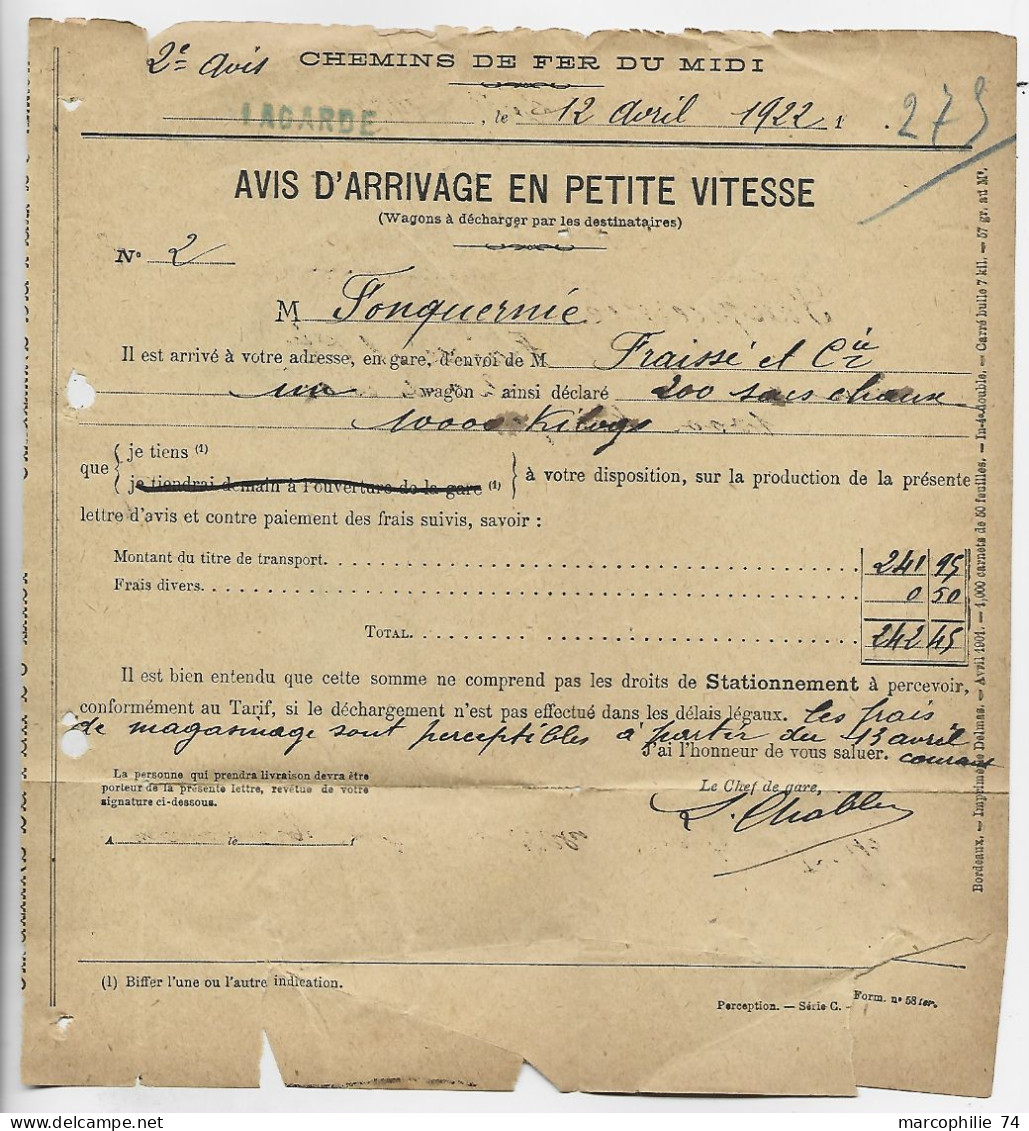 2e avis CHEMINS DE FER DU MIDI
LAGARDE, le 12 avril 1922 1 . 275
AVIS D'ARRIVAGE EN PETITE VITESSE
(Wagons à décharger par les destinataires)
N° 2
M Fonquernie
Il est arrivé à votre adresse, en gare, d'envoi de M Fraissé et Cie
un wagon ainsi déclaré 200 sacs chaux
10000 Kilogs
que { je tiens (1)
je tiendrai demain à l'ouverture de la gare (1) } à votre disposition, sur la production de la présente
lettre d'avis et contre paiement des frais suivis, savoir :
Montant du titre de transport. 241 95
Frais divers. 0 50
TOTAL. 242 45
Il est bien entendu que cette somme ne comprend pas les droits de Stationnement à percevoir,
conformément au Tarif, si le déchargement n'est pas effectué dans les délais légaux. les frais
de magasinage sont perceptibles à partir du 13 avril
J'ai l'honneur de vous saluer. courant
La personne qui prendra livraison devra être
porteur de la présente lettre, revêtue de votre
signature ci-dessous.
Le Chef de gare,
A le 1
(1) Biffer l'une ou l'autre indication.
Perception. — Série C. - Form. n° 58 ter.
Bordeaux. — Imprimerie Delmas. — Avril 1901. — 1,000 carnets de 50 feuilles. — In-4° double. — Carré bulle 7 kil. — 57 gr. au M².
marcophilie 74